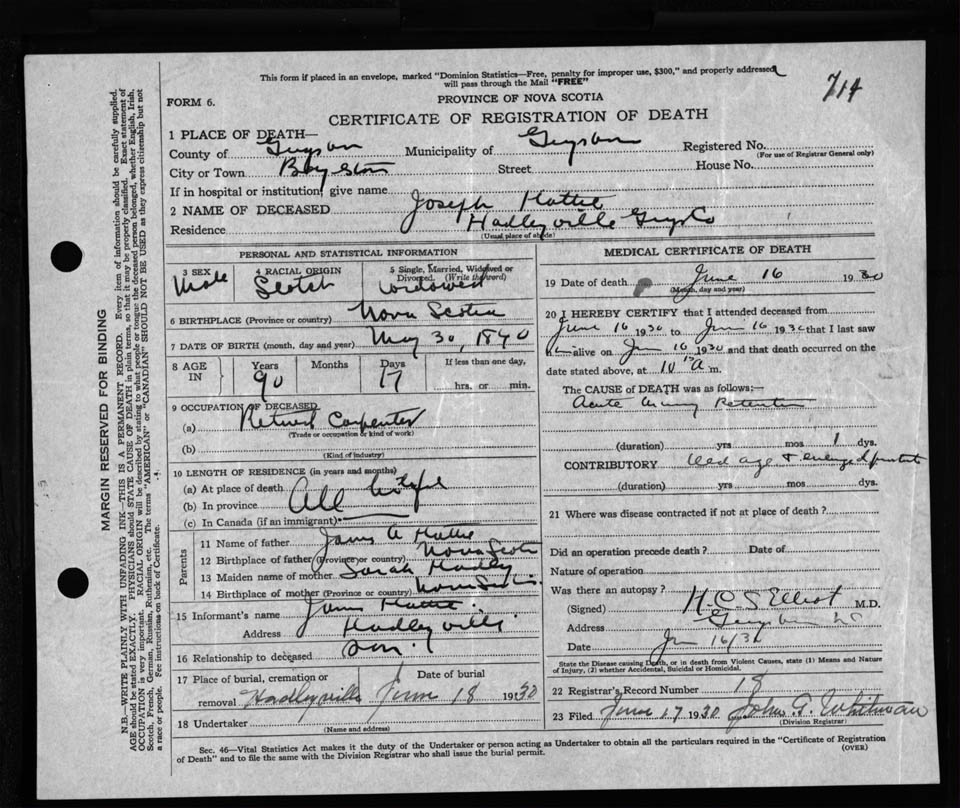 This form if placed in an envelope, marked "Dominion Statistics—Free, penalty for improper use, $300," and properly addressed
will pass through the Mail "FREE"
714
FORM 6.
PROVINCE OF NOVA SCOTIA
CERTIFICATE OF REGISTRATION OF DEATH
1 PLACE OF DEATH—
County of Guysboro Municipality of Guysboro Registered No.
(For use of Registrar General only)
City or Town Boylston Street House No.
If in hospital or institution, give name
2 NAME OF DECEASED Joseph Hattie
Residence Hadleyville Guys Co
(Usual place of abode)
PERSONAL AND STATISTICAL INFORMATION
3 SEX
Male
4 RACIAL ORIGIN
Scotch
5 Single, Married, Widowed or Divorced. (Write the word)
Widowed
6 BIRTHPLACE (Province or country) Nova Scotia
7 DATE OF BIRTH (month, day and year) May 30, 1840
8 AGE IN
Years 90
Months
Days 17
If less than one day,
hrs. or min.
9 OCCUPATION OF DECEASED
(a) Retired Carpenter
(Trade or occupation or kind of work)
(b)
(Kind of industry)
10 LENGTH OF RESIDENCE (in years and months)
(a) At place of death
(b) In province All
(c) In Canada (if an immigrant)
Parents
11 Name of father James A Hattie
12 Birthplace of father (Province or country) Nova Scotia
13 Maiden name of mother Sarah Hadley
14 Birthplace of mother (Province or country) Nova Scotia
15 Informant's name James Hattie
Address Hadleyville
16 Relationship to deceased son
17 Place of burial, cremation or removal Hadleyville
Date of burial June 18 1930
18 Undertaker
(Name and address)
MEDICAL CERTIFICATE OF DEATH
19 Date of death June 16 1930
(Month, day and year)
20 I HEREBY CERTIFY that I attended deceased from
June 16 1930 to Jun 16 1930 that I last saw
him alive on Jun 16 1930 and that death occurred on the
date stated above, at 10 A m.
The CAUSE of DEATH was as follows:—
Acute Urinary Retention
(duration) yrs mos 1 dys.
CONTRIBUTORY old age & enlarged prostate
(duration) yrs mos dys.
21 Where was disease contracted if not at place of death?
Did an operation precede death? Date of
Nature of operation
Was there an autopsy?
(Signed) H.C.S Elliot M.D.
Address Guysboro NS
Date Jun 16/30
State the Disease causing Death, or in death from Violent Causes, state (1) Means and Nature of Injury, (2) whether Accidental, Suicidal or Homicidal.
22 Registrar's Record Number 18
23 Filed June 17 1930 John G. Whitman
(Division Registrar)
Sec. 46—Vital Statistics Act makes it the duty of the Undertaker or person acting as Undertaker to obtain all the particulars required in the "Certificate of Registration
of Death" and to file the same with the Division Registrar who shall issue the burial permit.
(OVER)
MARGIN RESERVED FOR BINDING
N.B.—WRITE PLAINLY WITH UNFADING INK—THIS IS A PERMANENT RECORD. Every item of information should be carefully supplied.
AGE should be stated EXACTLY. PHYSICIANS should STATE CAUSE OF DEATH in plain terms, so that it may be properly classified. Exact statement of
OCCUPATION is very important. RACIAL ORIGIN will be described by stating to what people or tongue the deceased person belonged, whether English, Irish,
Scotch, French, German, Russian, Ruthenian, etc. The terms "AMERICAN" or "CANADIAN" SHOULD NOT BE USED as they express citizenship but not
a race or people. Fee instructions on back of Certificate.